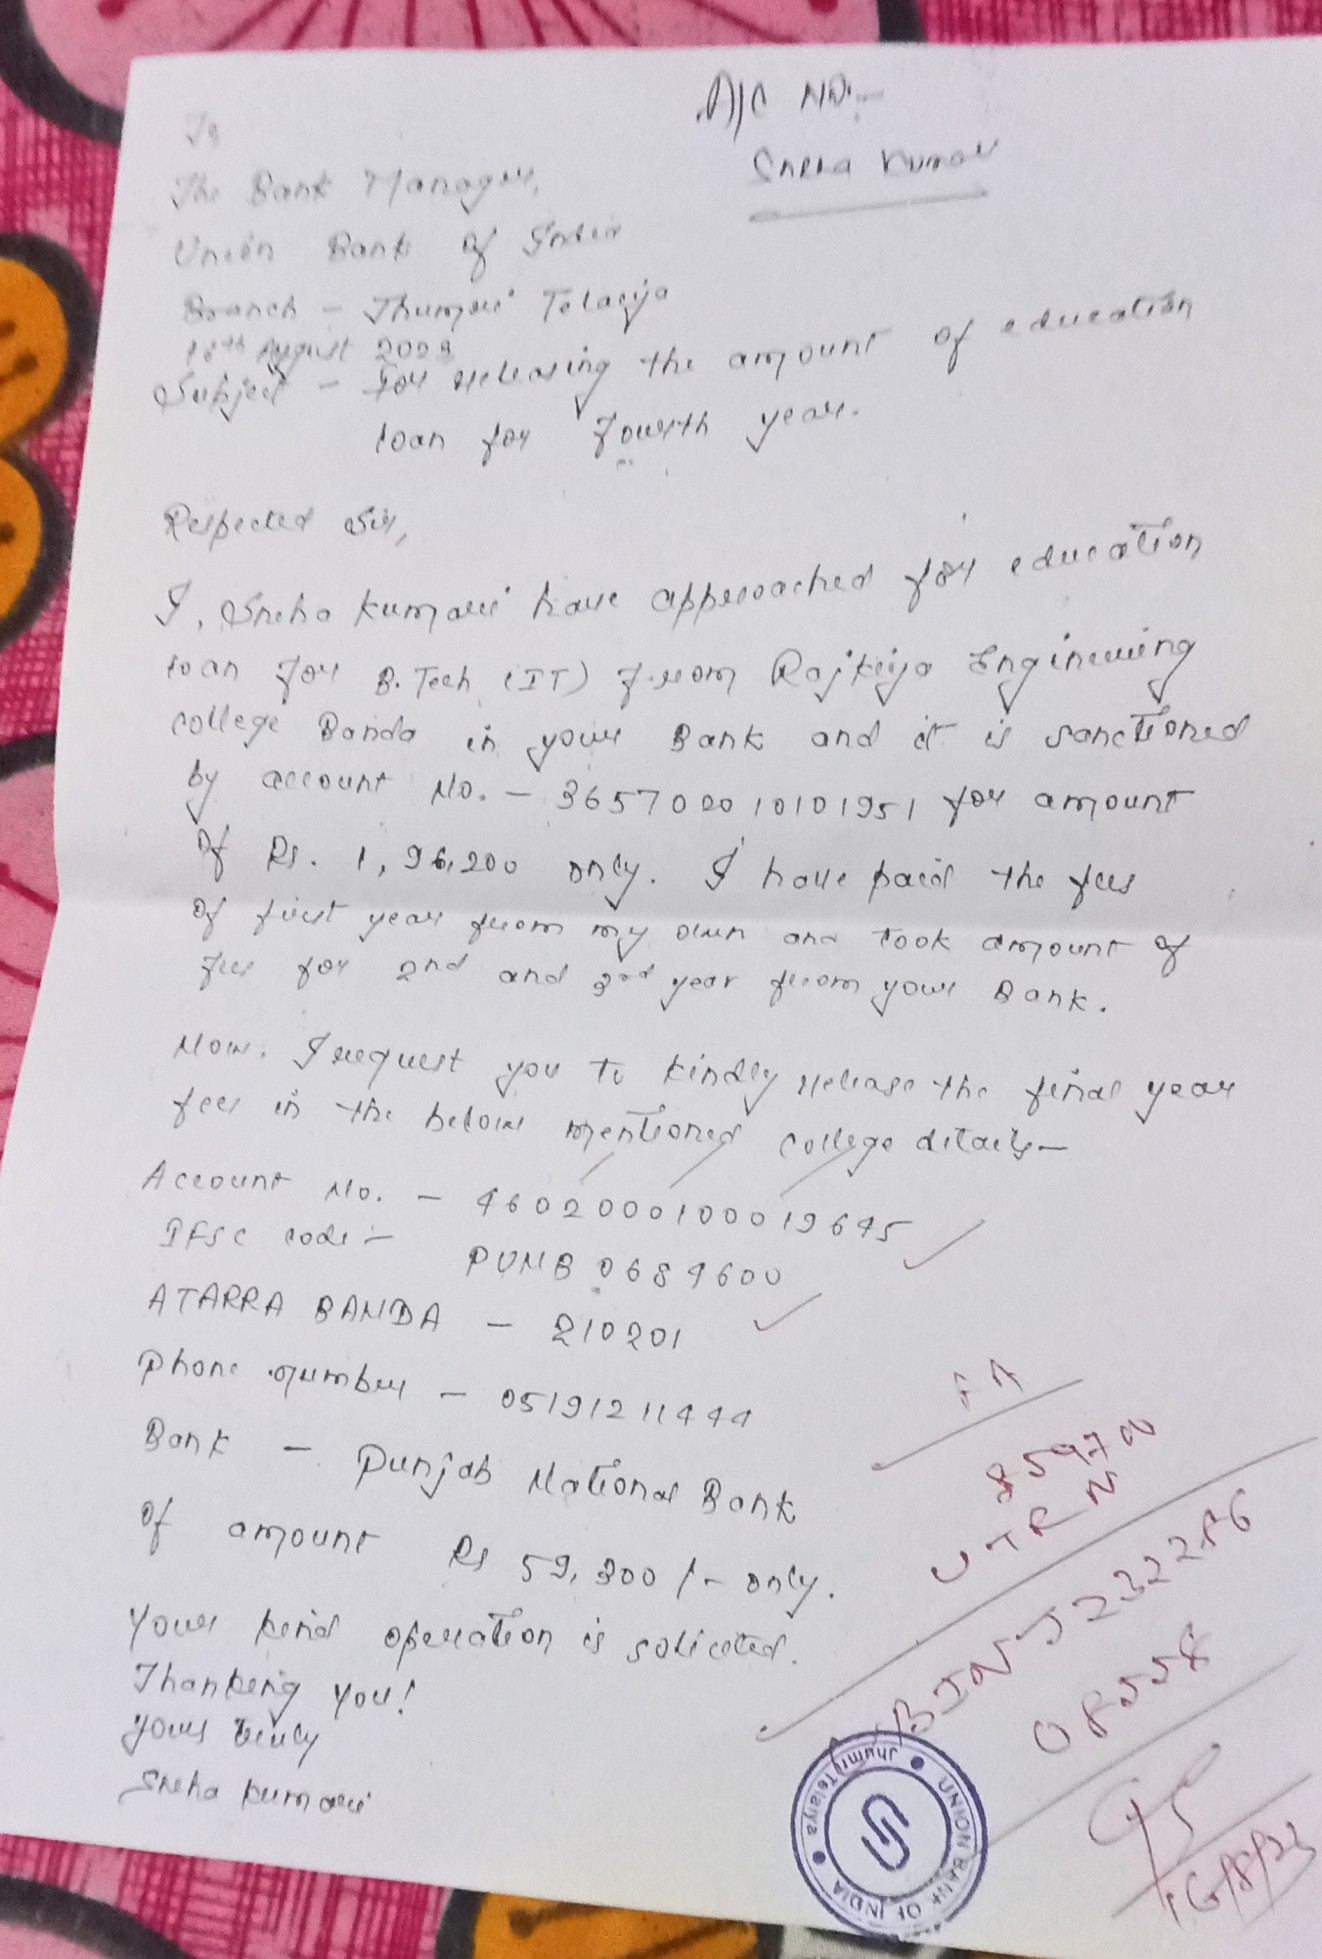 A/C No:-
Sneha Kumari
To
The Bank Manager,
Union Bank of India
Branch - Jhumri Telaiya
August
Subject - For releasing the amount of education
loan for Fourth year.
Respected Sir,
I, Sneha Kumari have approached for education
loan for B.Tech (IT) from Rajkiya Engineering
college Banda in your Bank and it is sanctioned
by account No. - 365700010101951 for amount
of Rs. 1,96,200 only. I have paid the fees
of first year from my own and took amount of
fee for 2nd and 3rd year from your Bank.
Now, I request you to kindly release the final year
fees in the below mentioned college details-
Account No. - 4602000100019645
IFSC code:- PUNB 0684600
ATARRA BANDA - 210201
Phone number - 05191211444
Bank - Punjab National Bank
of amount Rs 59,300 /- only.
Your kind operation is solicited.
Thanking you!
Yours truly
Sneha Kumari
UTRN
08558
16/8/23
UNION BANK OF INDIA
Jhumri Telaiya